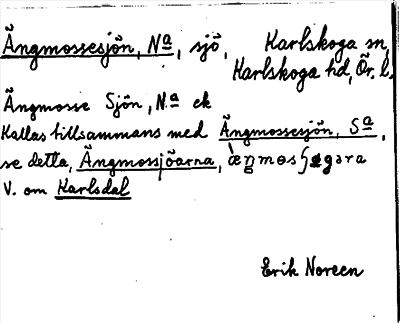 Ängmossesjön, Nª, sjö, Karlskoga sn,
Karlskoga hd, Ör. l.
Ängmosse Sjön, N.ª ek
Kallas tillsammans med Ängmossesjön, Sª,
se detta, Ängmossjöarna,
V. om Karlsdal
Erik Noreen